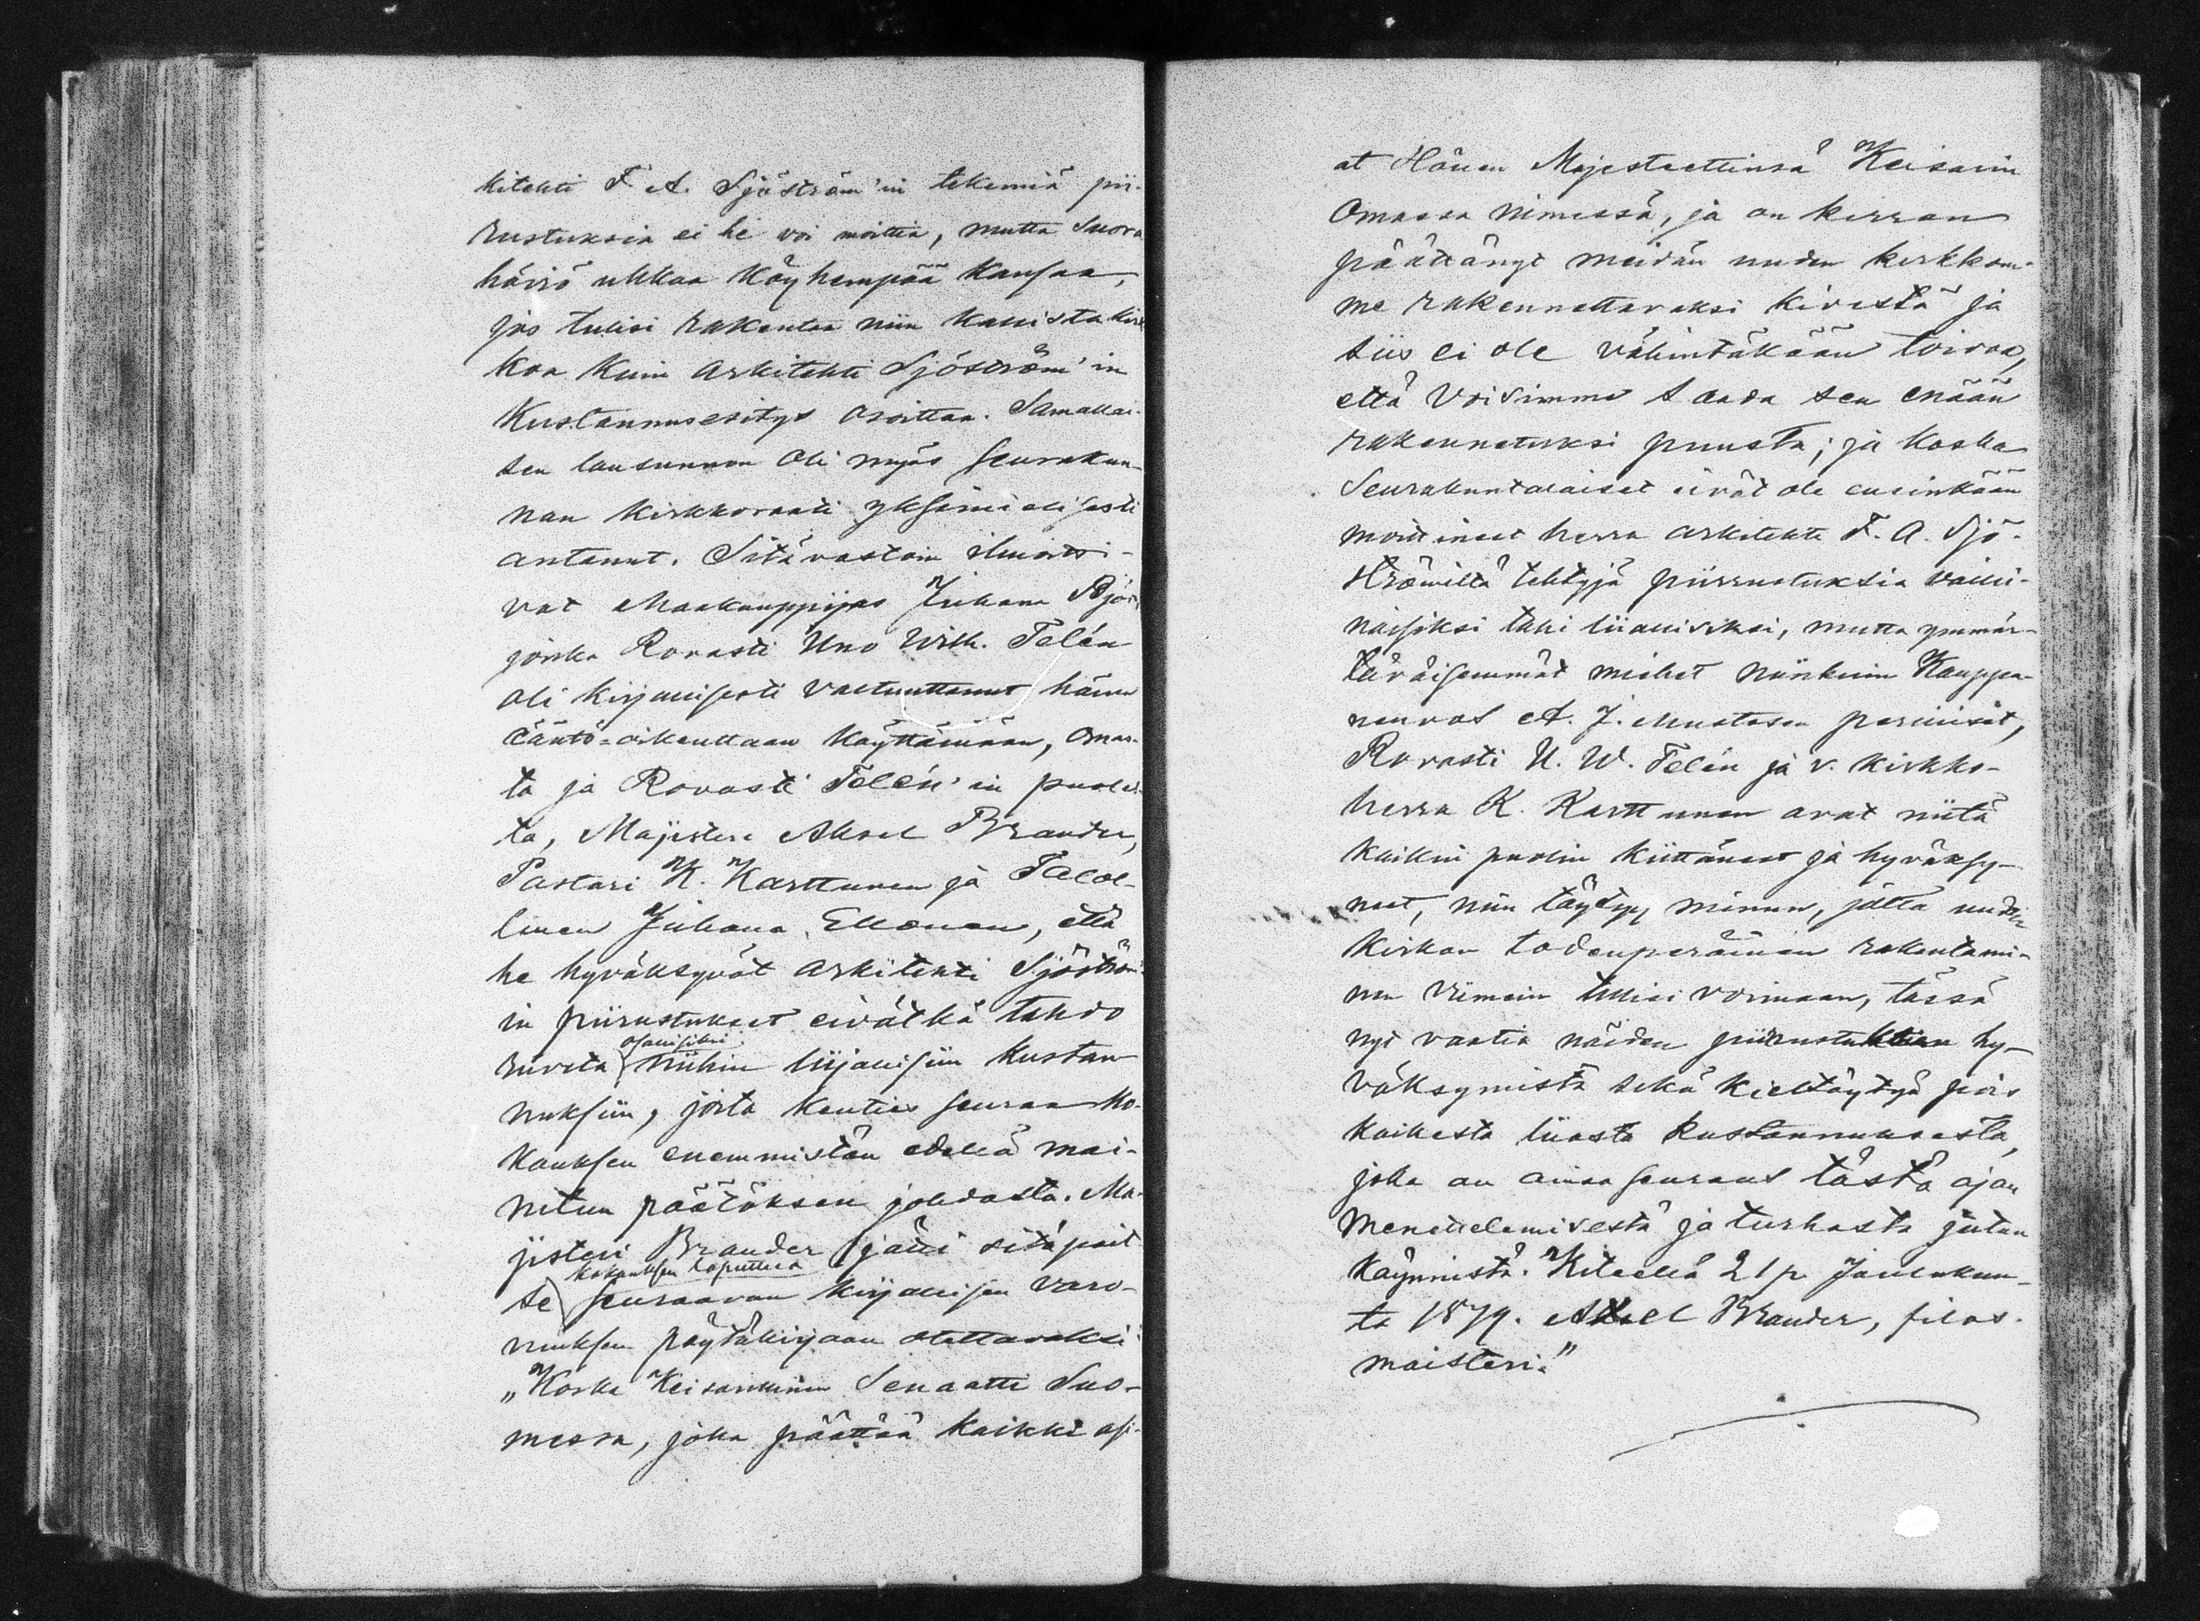 kitehti F. A. Sjöström'in tekemiä pii-
rustuksia ei he voi moittia, mutta suora
häviö uhkaa köyhempää kansaa,
jos tulisi rakentaa niin kallista kirk
koa kuin arkitehti Sjöström'in
kustannusesitys osoittaa. Samallai-
sen lausunnon oli myös seurakun-
nan kirkkoraati yksimielisesti
antanut. Sitävastoin ilmoitti-
vat Maakauppijas Juhana Björ
jonka Rovasti Uno Wilh. Telén
oli kirjallisesti valtuuttanut hänen
ääntö-oikeuttaan käyttämään, omas-
ta ja Rovasti Telén'in puoles-
ta, Majisteri Aksel Brander,
Pastori K. Karttunen ja Talol-
linen Juhana Ellonen, että
he hyväksyvät arkitehti Sjöström-
in piirustukset eivätkä tahdo
osallisiksi
ruveta niihin liijallisiin kustan
nuksiin, joita kenties seuraa ko-
kouksen enemmistön edellä mai-
nitun päätöksen johdosta. Ma-
jisteri Brander jätti sitäpait-
kokouksen loputtua
se seuraavan kirjallisen varo-
nuksen pöytäkirjaan otettavaksi:
„Koska Keisarillinen Senaatti Suo-
messa, joka päättää kaikki asi-
at Hänen Majesteettinsä Keisarin
Omassa nimessä, ja on kerran
päättänyt meidän uuden kirkkom-
me rakennettavaksi kivestä ja
siis ei ole vähintäkään toivoa,
että voisimme saada sen enään
rakennetuksi puusta; ja koska
Seurakuntalaiset eivät ole ensinkään
moittineet herra arkitehti F. A. Sjö-
strömiltä tehtyjä piirrustuksia vailli-
naisiksi tahi liiallisiksi, mutta ymmär-
täväisemmät miehet niinkuin Kauppa-
neuvos A. J. Mustosen perilliset,
Rovasti U. W. Telén ja v. kirkko-
herra K. Karttunen ovat niitä
kaikin puolin kiittäneet ja hyväksy-
neet, niin täytyy minun, jotta uuden
kirkon todenperäinen rakentami-
nen viimein tulisi voimaan, tässä
nyt vaatia näiden piirustuksien hy-
väksymistä sekä kieltäytyä pois
kaikesta liiasta kustannuksesta,
joka on ainoa seuraus tästä ajan
menettelemisestä ja turhasta jutun
käynnistä. Kiteellä 21 p. Joulukuu-
ta 1879. Aksel Brander, filos.
maisteri."